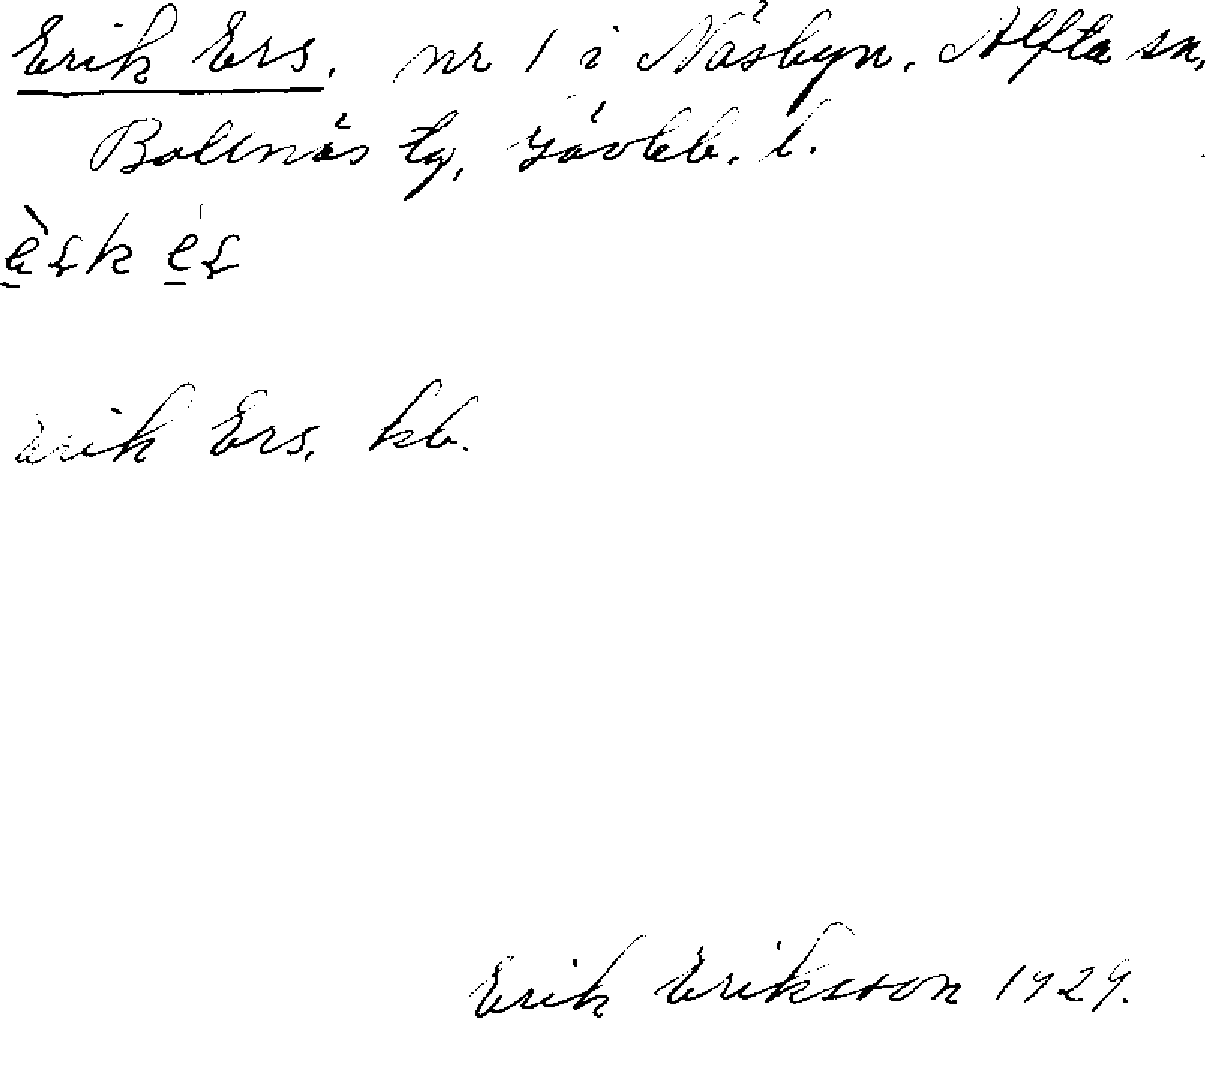 Erik Ers. nr 1 i Näsbyn. Alfta sn,
Bollnäs tg, Gävleb. l.
Erik Ers. kb.
Erik Eriksson 1929.